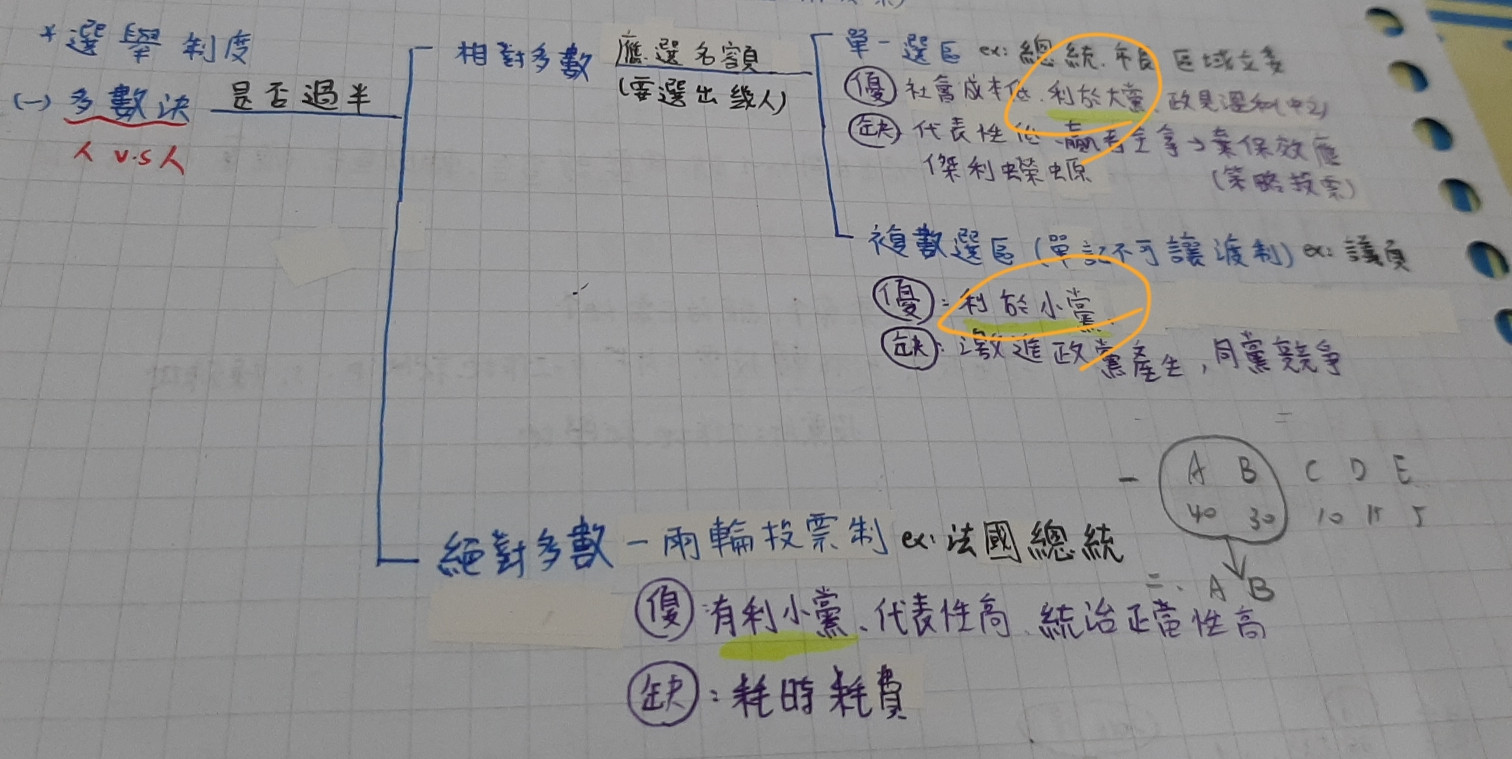 *選舉制度
(一)多數決 是否過半
人 v.s 人
相對多數 應選名額
(要選出幾人)
單一選區 ex: 總統、市長 區域立委
優 社會成本低、利於大黨、政見溫和(中立)
缺 代表性低、贏者全拿→棄保效應
傑利蠑螈 (策略投票)
複數選區(單記不可讓渡制) ex: 議員
優:利於小黨、
缺:激進政黨產生,同黨競爭
一 A B C D E
40 30 10 15 5
二. A B
絕對多數 一 兩輪投票制 ex: 法國總統
優:有利小黨、代表性高、統治正當性高
缺:耗時耗費